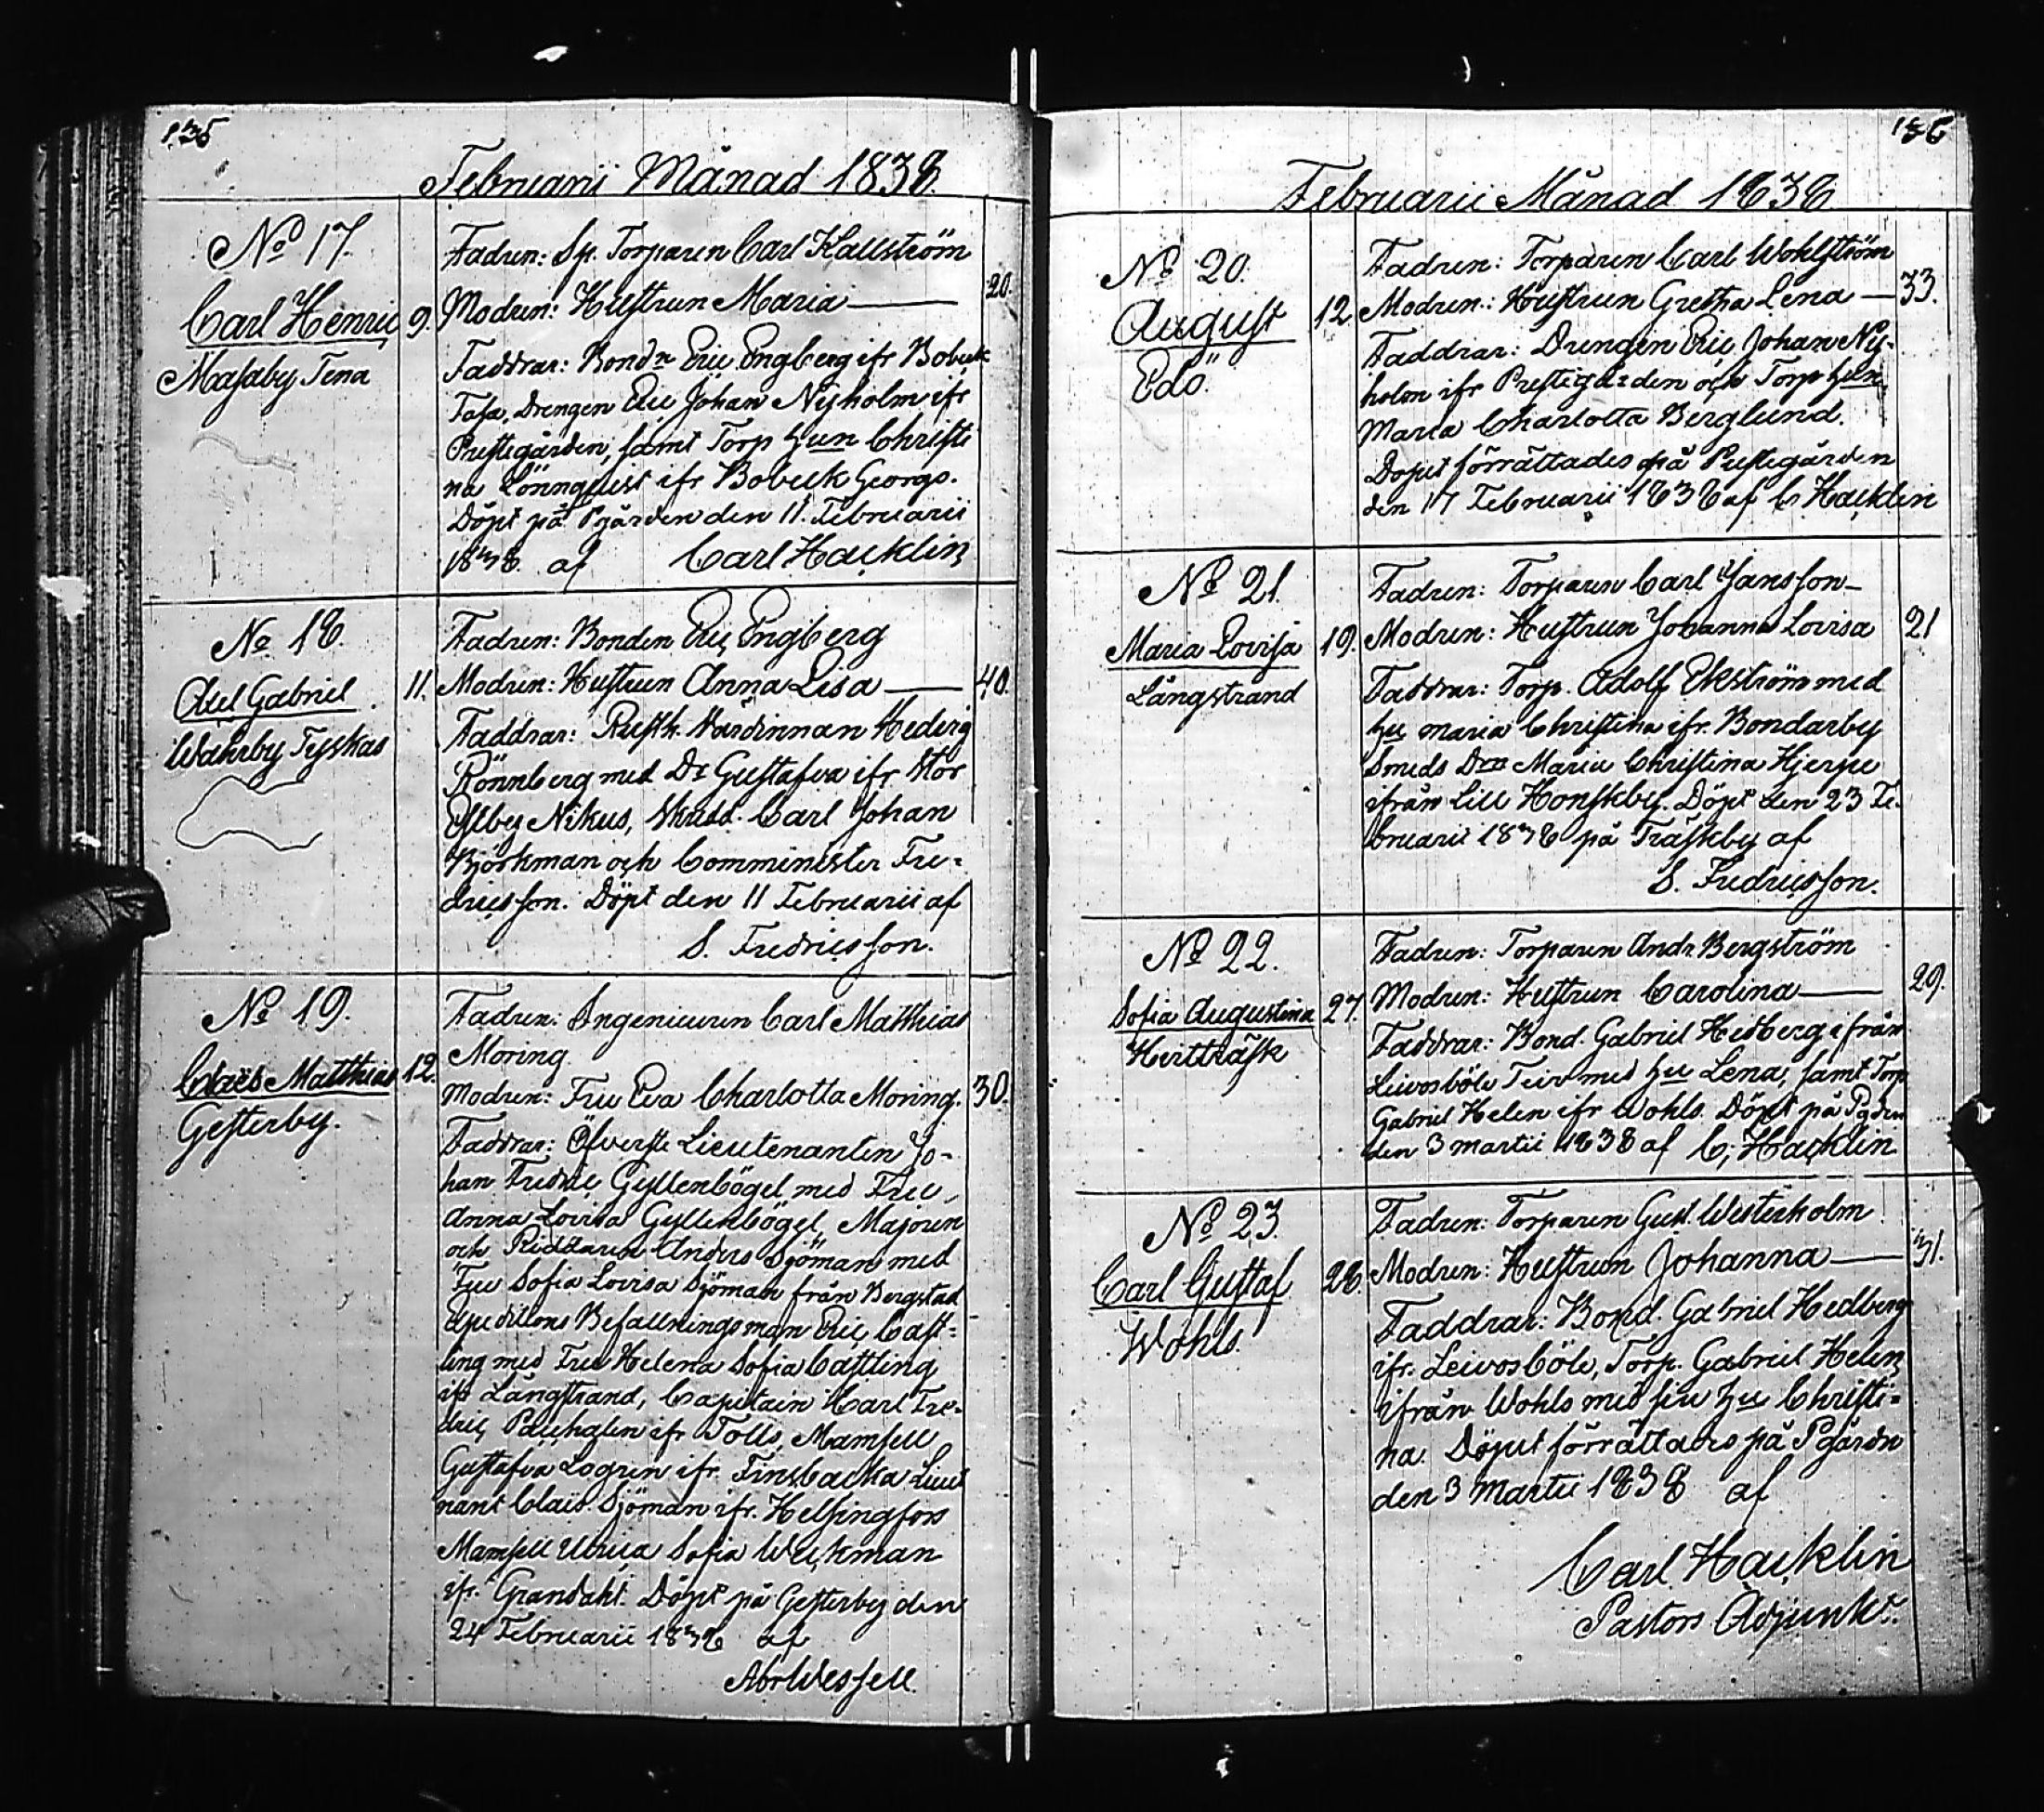 135
Februarii Månad 1838.
No 17.
Carl Henric
Masaby Tena
9.
Fadren: Sp. Torparen Carl Kallström
Modren: Hustrun Maria — 20.
Faddrar: Bondn Eric Engberg ifr Bobeck
Tasa, Drengen Eric Johan Nyholm ifr
Prestegården, samt Torp hun Christi
na Lönnqvist ifr Bobeck Georgs.
Döpt på Pgården den 11. Februarii
1838. af Carl Hacklin
No 18.
Axel Gabriel
Wahrby Tyskas
11.
Fadren: Bonden Eric Engberg
Modren: Hustrun Anna Lisa — 40.
Faddrar: Rusth. Värdinnan Hedvig
Rönnberg med Dr Gustafva ifr Stor
Esby Nikus, Stud. Carl Johan
Björkman och Comminister Fre-
dricsson. Döpt den 11 Februarii af
S. Fredricsson.
No 19.
Claës Matthias
Gesterby.
12.
Fadren: Ingenieuren Carl Matthias
Moring
Modren: Fru Eva Charlotta Moring. 30.
Faddrar: Öfverste Lieutenanten Jo-
han Fredric Gyllenbögel med Fru
Anna Lovisa Gyllenbögel, Majoren
och Riddaren Anders Sjöman med
Fru Sofia Lovisa Sjöman från Bergstad
Expeditions Befallningsman Eric Cast-
ling med Fru Helena Sofia Castling
ifr Långstrand, Capitain Carl Fre-
dric Paichalen ifr Tolls, Mamsell
Gustafva Logren ifr. Finsbacka Lieut
nant Claës Sjöman ifr. Helsingfors
Mamsell Ulrica Sofia Weckman
ifr. Grandahl. Döpt på Gesterby den
24 Februarii 1838 af
Abr Wessell.
136
Februarii Månad 1838
No 20.
August
Edö.
12.
Fadren: Torparen Carl Wohlström
Modren: Hustrun Gretha Lena — 33.
Faddrar: Drengen Eric Johan Ny-
holm ifr Prestigården och Torp hun
Maria Charlotta Berglund.
Dopet förrättades på Prestegården
den 17 Februarii 1838 af C Hacklin
No 21.
Maria Lovisa
Långstrand
19.
Fadren: Torparen Carl Jansson —
Modren: Hustrun Johanna Lovisa 21
Faddrar: Torp. Adolf Ekström med
hu Maria Christina ifr. Bondarby
Smeds Drn Maria Christina Hjerpe
ifrån Lill Honskby. Döpt den 23 Fe-
bruarii 1838 på Träskby af
S. Fredricsson.
No 22.
Sofia Augustina
Hvitträsk
27.
Fadren: Torparen Andr. Bergström
Modren: Hustrun Carolina — 29.
Faddrar: Bond. Gabriel Hedberg ifrån
Leivosböle Teir med hu Lena, samt Torp
Gabriel Helen ifr Wohls. Döpt på Pgården
den 3 Martii 1838 af C, Hacklin
No 23.
Carl Gustaf
Wohls.
28.
Fadren: Torparen Gust. Westerholm
Modren: Hustrun Johanna — 31.
Faddrar: Bond. Gabriel Hedberg
ifr. Leivosböle, Torp. Gabriel Helen
ifrån Wohls med sin hu Christi-
na. Döpet förrättades på Pgårdn
den 3 Martii 1838 af
Carl Hacklin
Pastors Adjunkt.